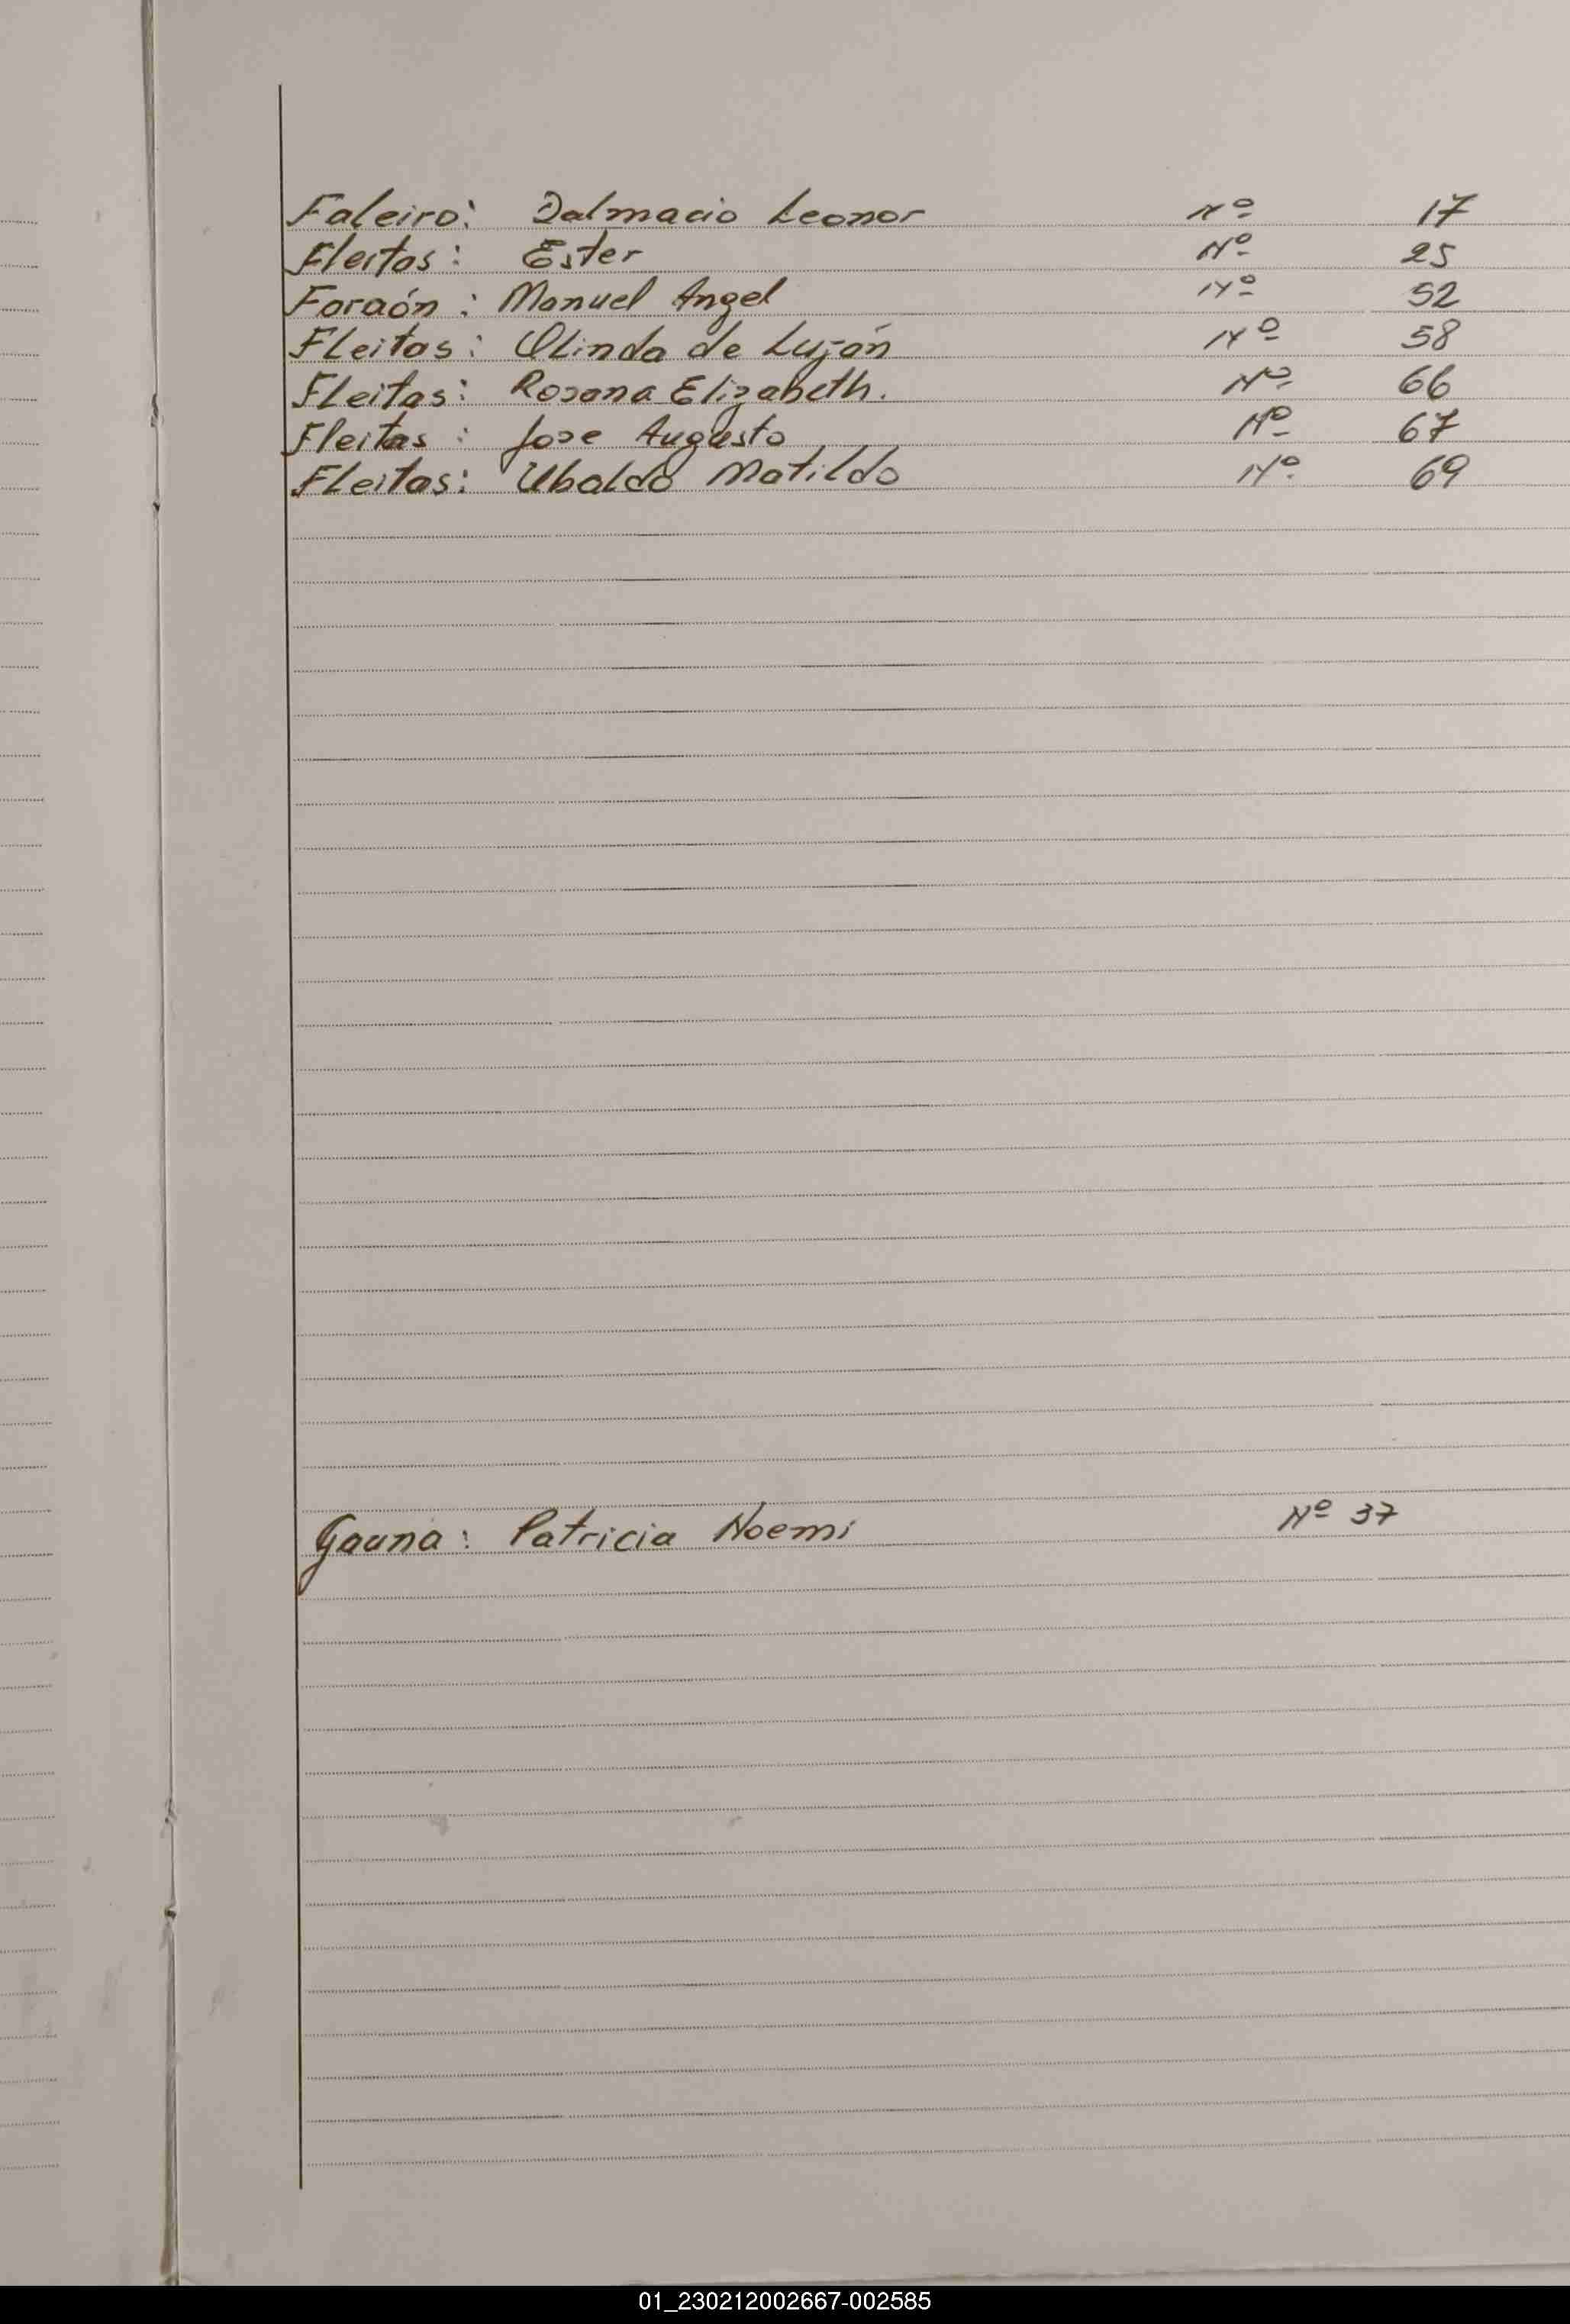 Faleiro: Dalmacio Leonor Nº 17
Fleitas: Ester Nº 25
Faraón: Manuel Angel Nº 52
Fleitas: Olinda de Luján Nº 58
Fleitas: Rosana Elizabeth. Nº 66
Fleitas: Jose Augusto Nº 67
Fleitas: Ubaldo Matildo Nº 69
Gauna: Patricia Noemi Nº 37
01_230212002667-002585